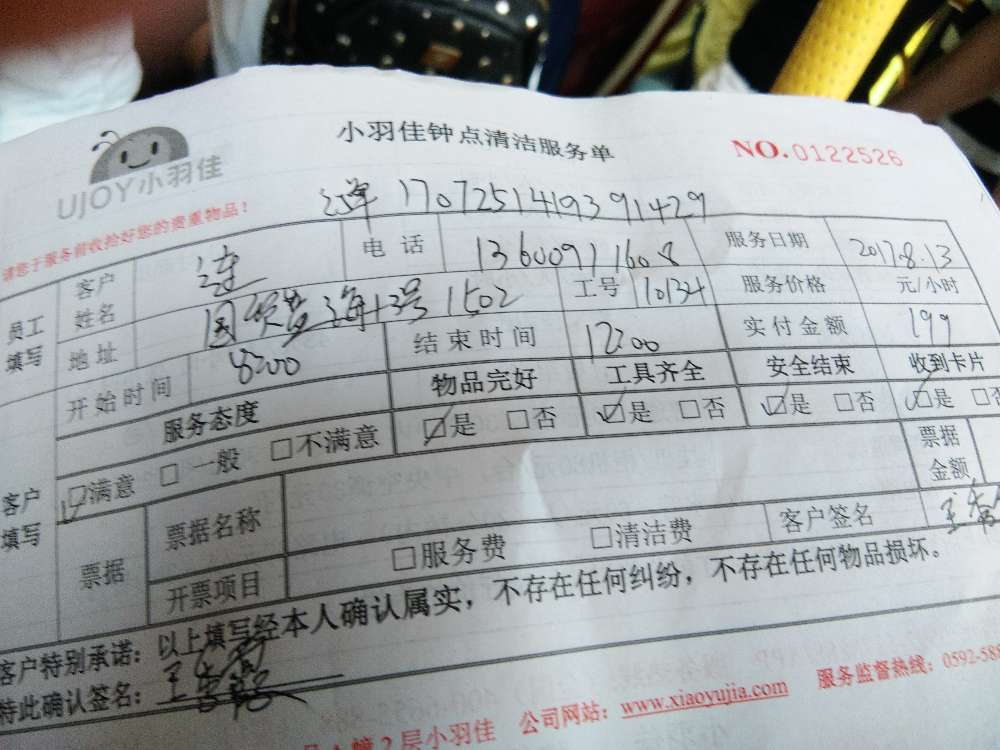 小羽佳钟点清洁服务单
NO.0122526
UJOY小羽佳
请您于服务前收拾好您的贵重物品！
170725141939 1429
员工填写 客户姓名 连 电话 13600911608 服务日期 2017.8.13
地址 1502 工号 10134 服务价格 元/小时
开始时间 8:00 结束时间 12:00 实付金额 199
客户填写 服务态度 物品完好 工具齐全 安全结束 收到卡片
☑满意 □一般 □不满意 ☑是 □否 ☑是 □否 ☑是 □否 ☑是 □否
票据 票据名称 票据金额
开票项目 □服务费 □清洁费 客户签名
客户特别承诺：以上填写经本人确认属实，不存在任何纠纷，不存在任何物品损坏。
特此确认签名：
2层小羽佳 公司网站：www.xiaoyujia.com 服务监督热线：0592-588